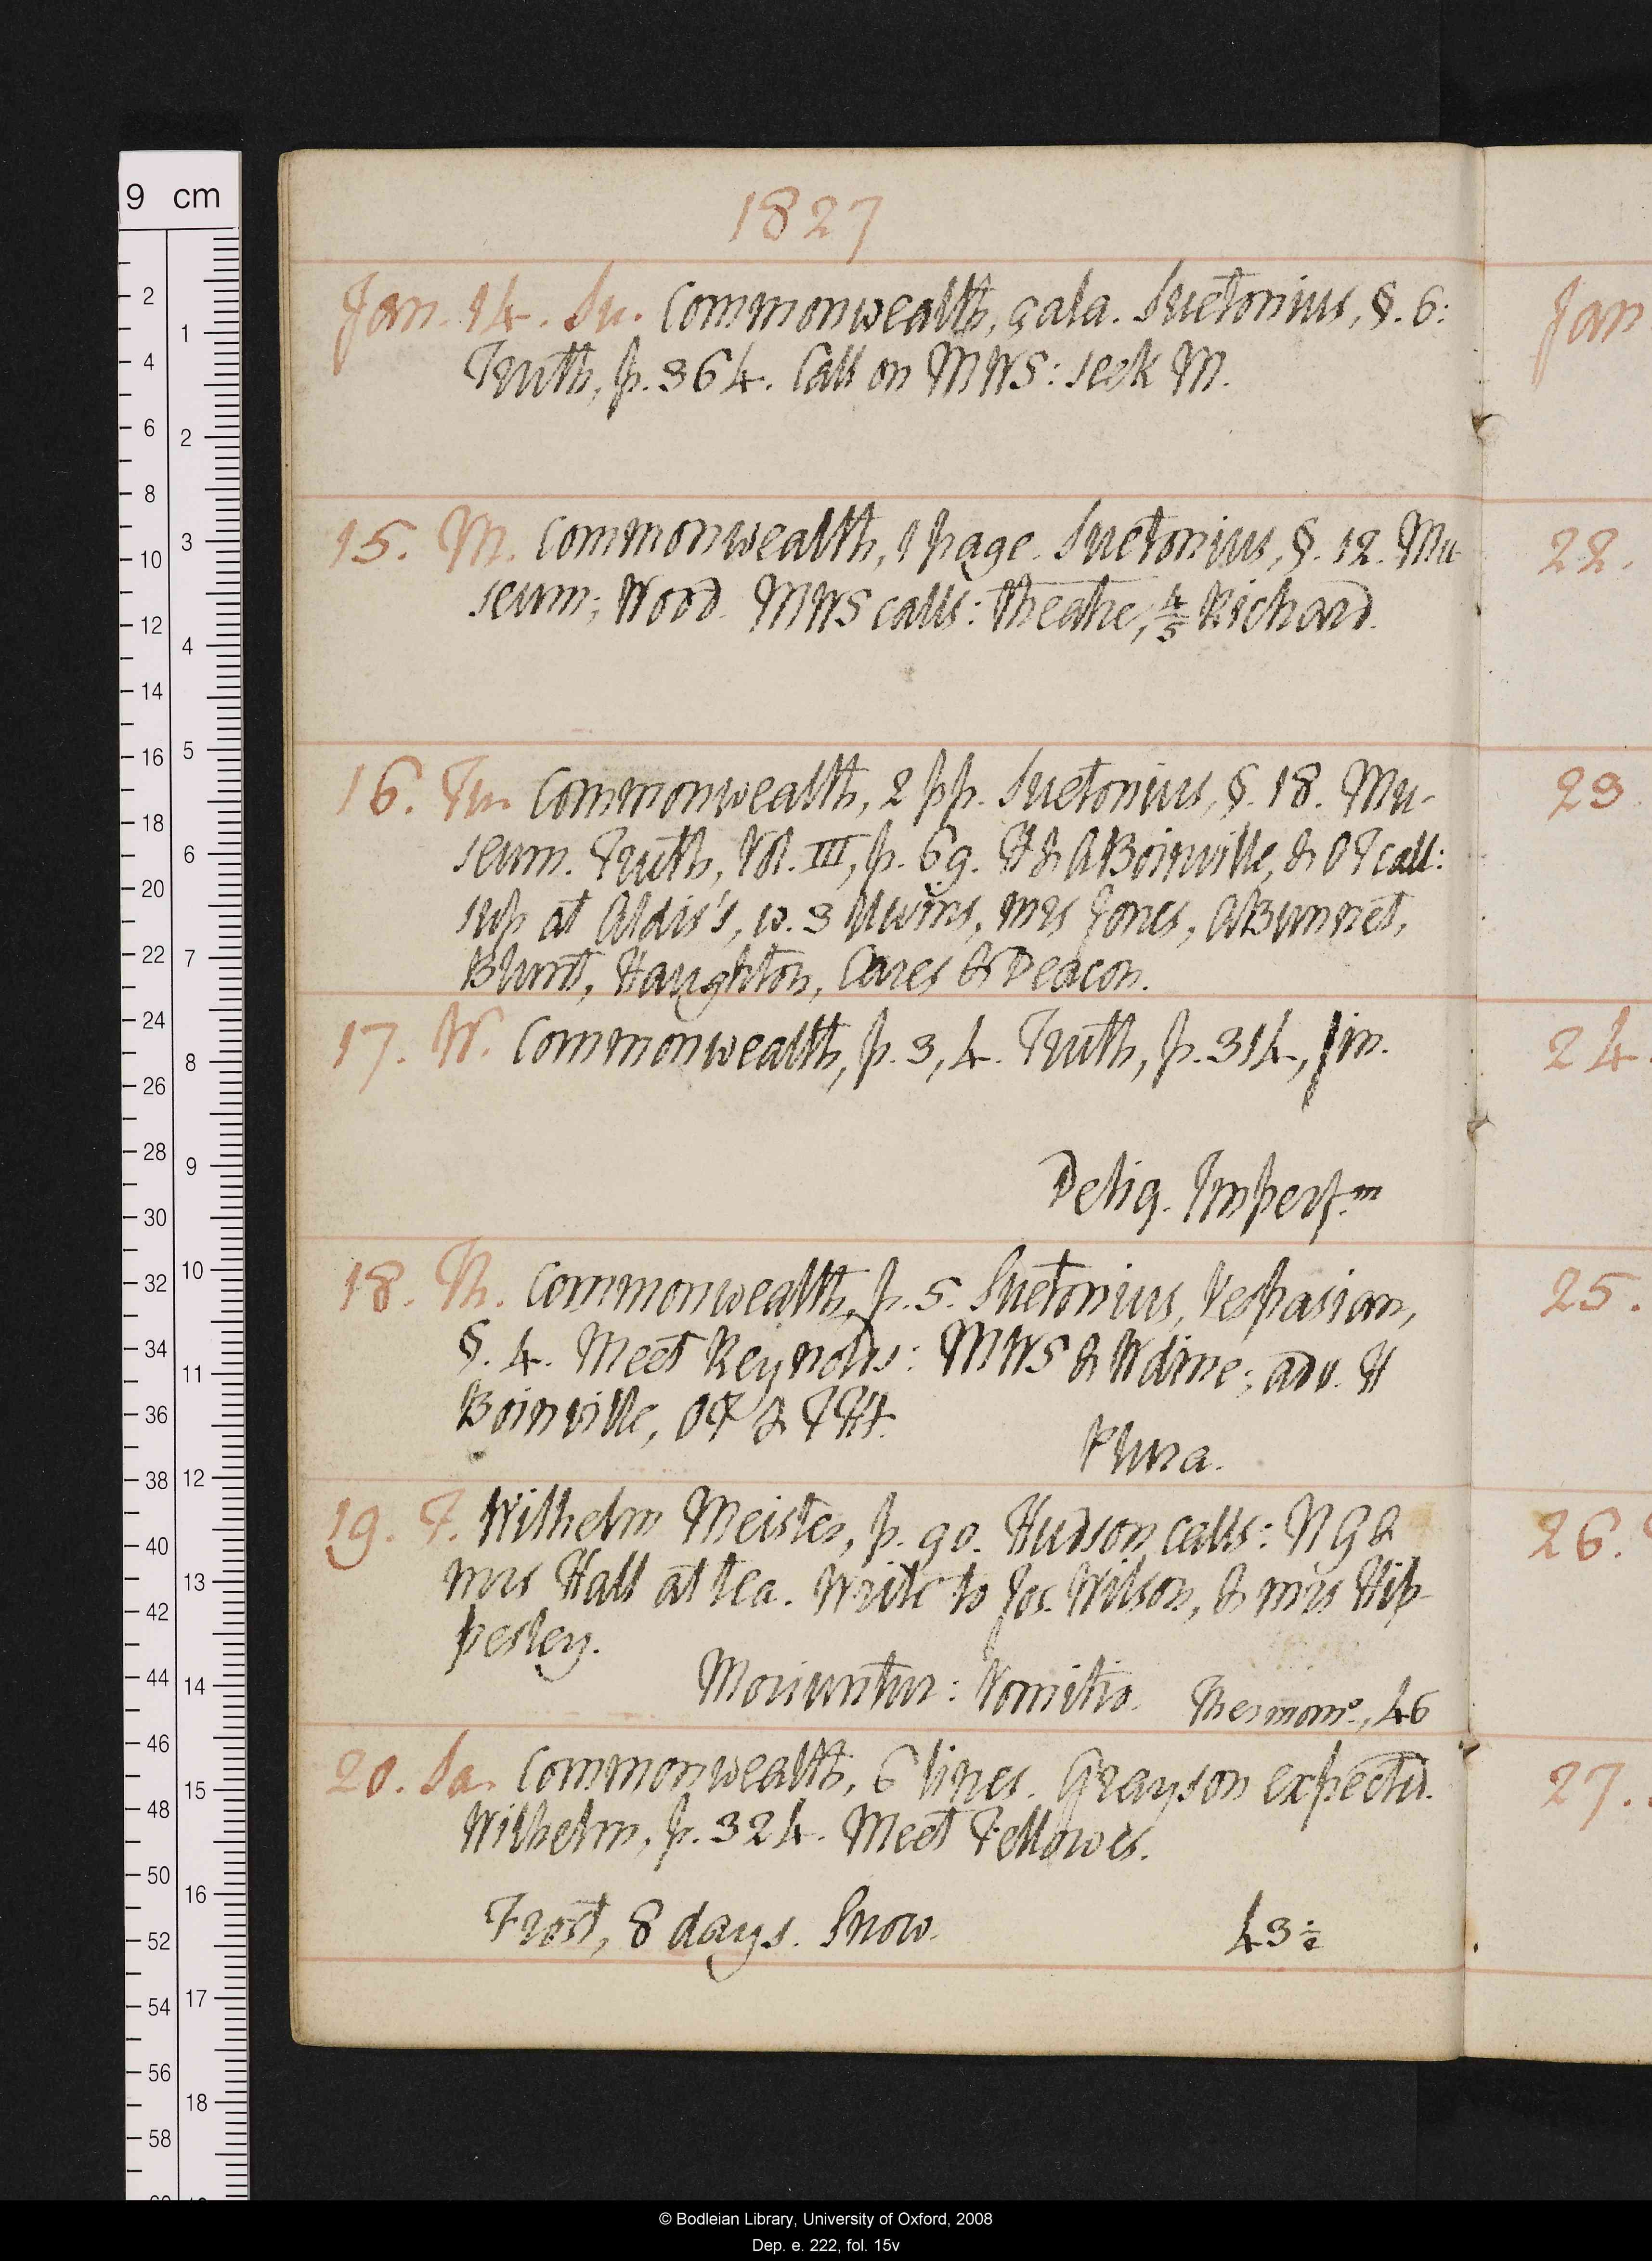 1827
Jan. 14. Su. Commonwealth, çala. Suetonius, §. 6:
Truth, p. 364. Call on MWS: seek M.
15. M. Commonwealth, 1 page. Suetonius, §. 12. Mu-
seum; Wood. MWS calls: theatre, 4/5 Richard.
16. Tu. Commonwealth, 2 pp. Suetonius, §. 18. Mu-
seum. Truth, Vol. III, p. 69. H & A Boinville, & OT call:
sup at Aldis's, w. 3 Uwins, mrs Jones, A Bunnet,
Blunt, Haughton, Cares & Deacon.
17. W. Commonwealth, p. 3, 4. Truth, p. 314, fin.
Deliq. Imperf.m
18. Th. Commonwealth, p. 5. Suetonius, Vespasian,
§. 4. Meet Reynolds: MWS & W dine; adv. H
Boinville, OT & TH.
Plura.
19. F. Wilhelm Meister, p. 90. Hudson calls: NG &
mrs Hall at tea. Write to Jos. Wilson, & mrs Hip-
pesley.
Moriuntur: Vomitio. Thermomr., 46
20. Sa. Commonwealth, 6 lines. Grayson expectd.
Wilhelm, p. 324. Meet Fellowes.
Frost, 8 days. Snow. 43½
Jan
22.
23
24.
25.
26.
27.
9 cm
2
4
6
8
10
12
14
16
18
20
22
24
26
28
30
32
34
36
38
40
42
44
46
48
50
52
54
56
58
1
2
3
4
5
6
7
8
9
10
11
12
13
14
15
16
17
18
© Bodleian Library, University of Oxford, 2008
Dep. e. 222, fol. 15v